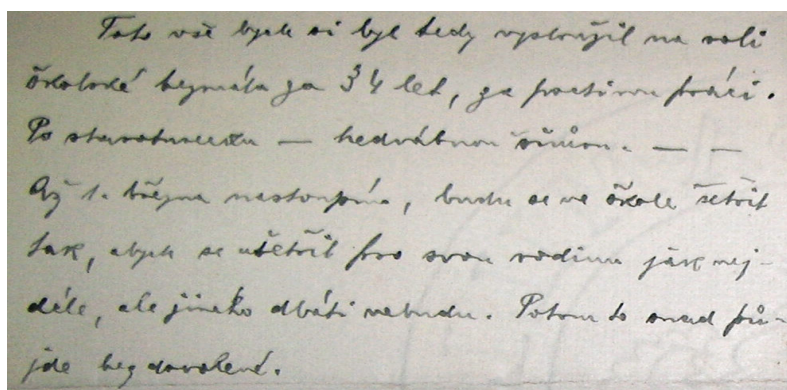 Toto vše bych si byl tedy vysloužil na roli
školské hejmala za 34 let, za poctivou práci.
Po staroturecku — hedvábnou šňůru. — —
Až 1. března nastoupím, budu se ve škole šetřit
tak, abych se ušetřil pro svou rodinu jak nej-
déle, ale jinako dbáti nebudu. Potom to snad pů-
jde bez dovolené.